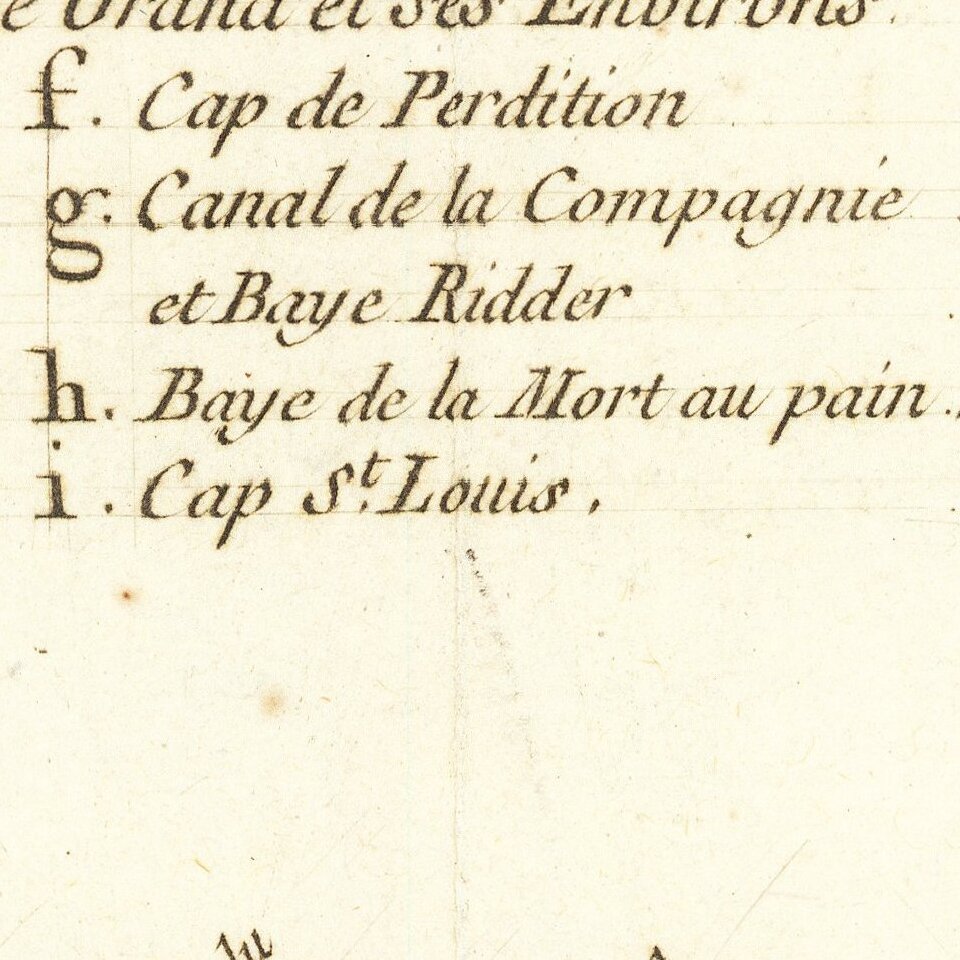 e Grand et ses Environs.
f. Cap de Perdition
g. Canal de la Compagnie
et Baye Ridder
h. Baye de la Mort au pain.
i. Cap S.t Louis.